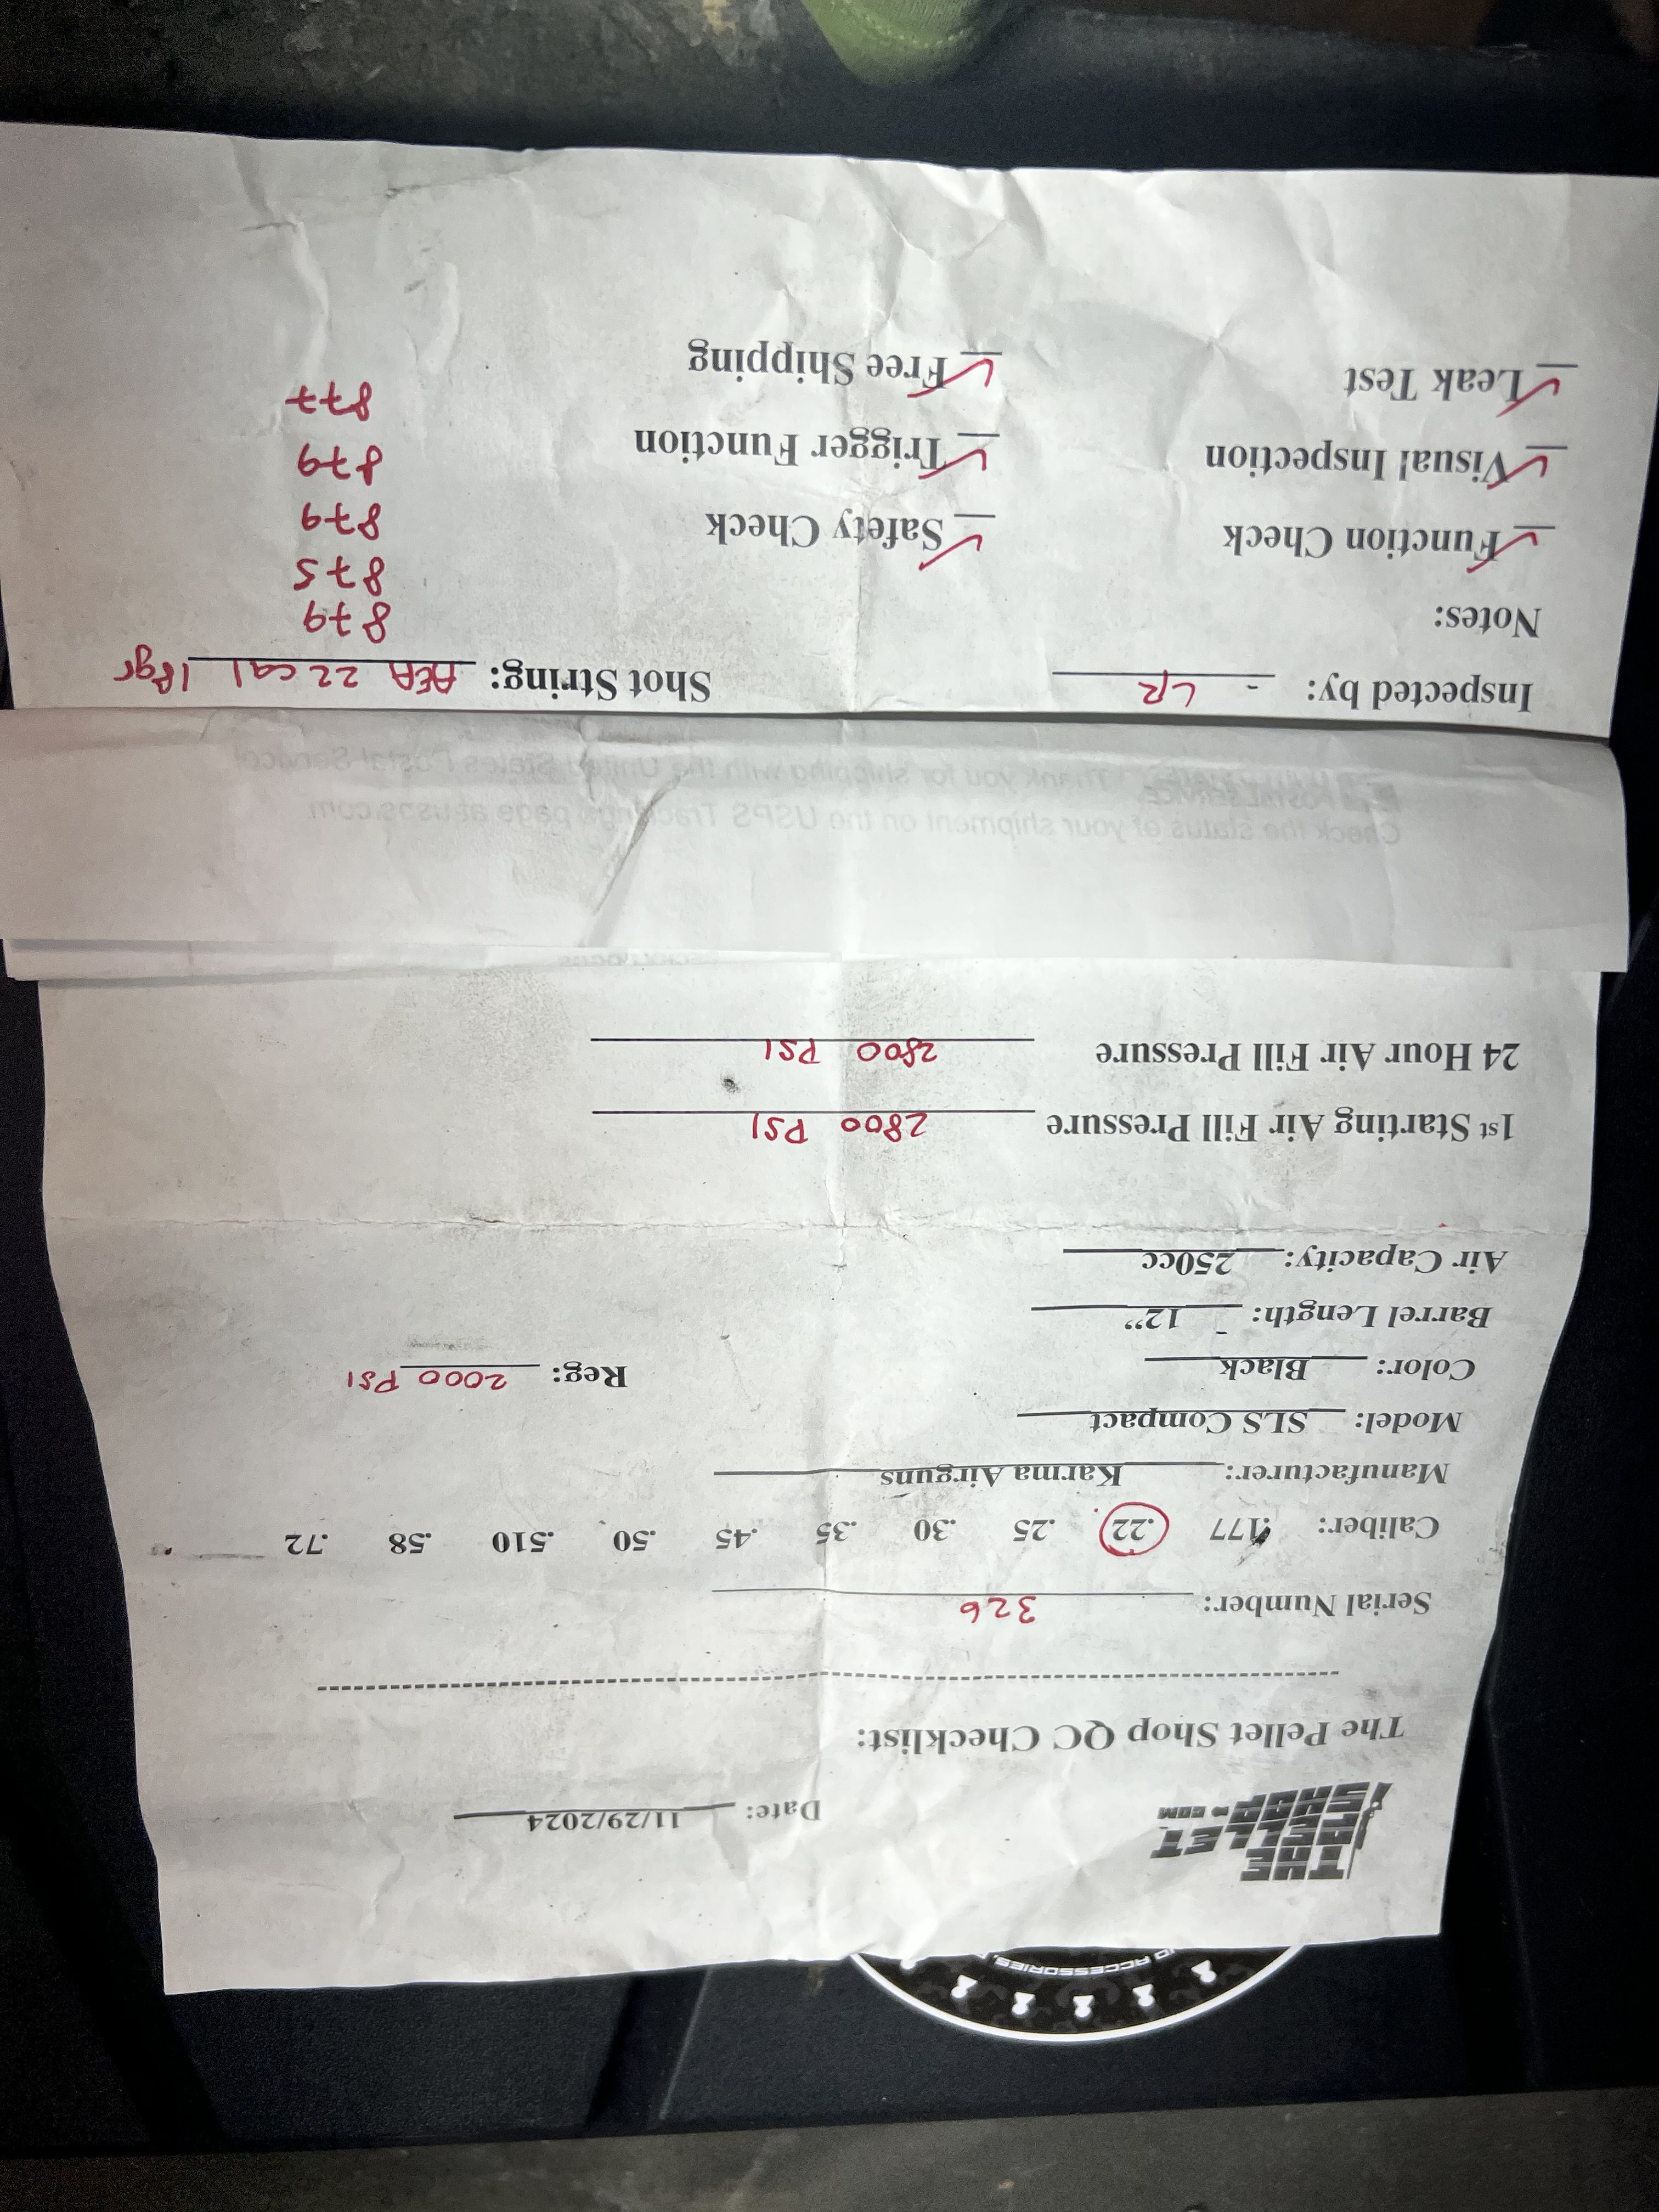 THE
PELLET
SHOP .COM
Date: 11/29/2024
The Pellet Shop QC Checklist:
Serial Number: 326
Caliber: .177 .22 .25 .30 .35 .45 .50 .510 .58 .72
Manufacturer: Karma Airguns
Model: SLS Compact
Color: Black
Reg: 2000 PSI
Barrel Length: 12”
Air Capacity: 250cc
1st Starting Air Fill Pressure 2800 PSI
24 Hour Air Fill Pressure 2800 PSI
Check the status of your shipment on the USPS Tracking® page at usps.com
Thank you for shipping with the United States Postal Service!
Inspected by: LR
Shot String: AEA 22 cal 18gr
Notes:
879
875
Function Check
Safety Check
879
Visual Inspection
Trigger Function
879
Leak Test
Free Shipping
877
ACCESSORIES